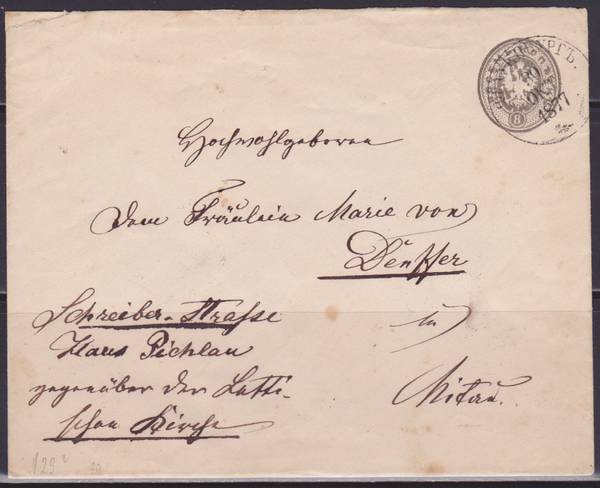 УРГЪ.
1877
8
Hochwohlgeboren
Dem Fräulein Marie von
Denffer
in
Mitau.
Schreiber-Straße
Haus Pichlau
gegenüber der Letti-
schen Kirche
129